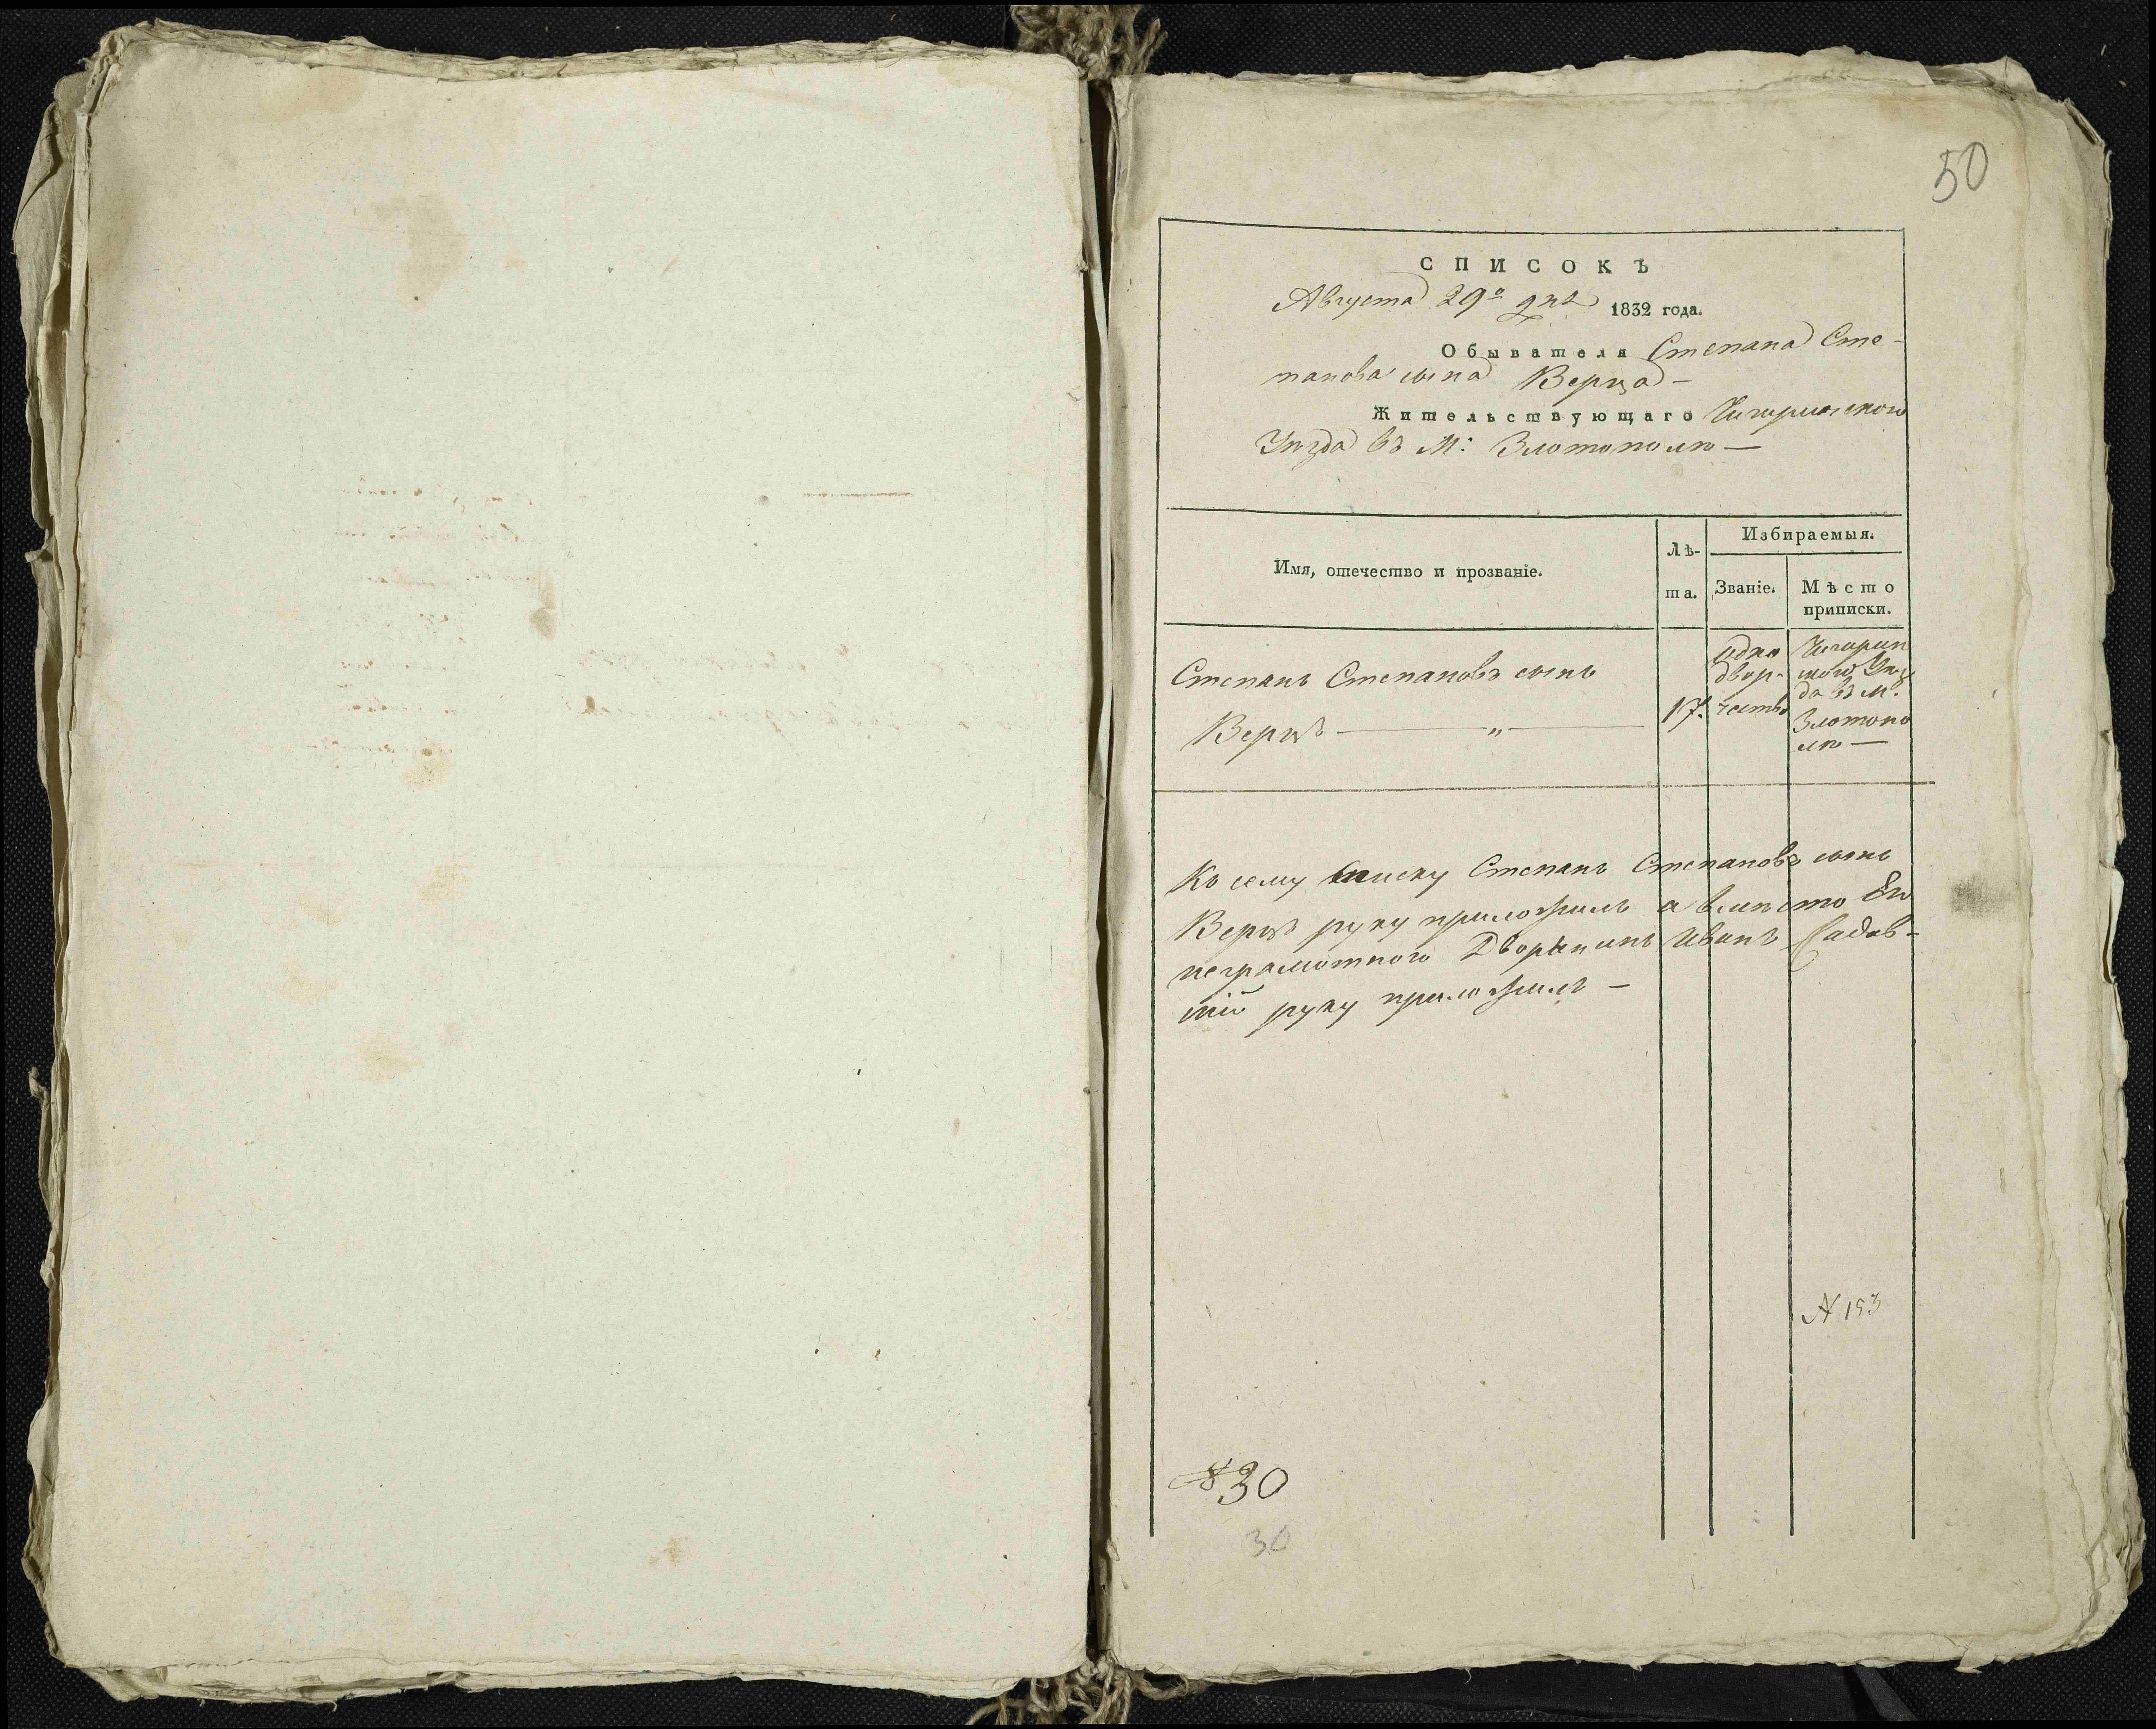 50
СПИСОКЪ
Августа 29º дня 1832 года.
Обывателя Степана Сте-
панова сына Верца —
Жительствующаго Чигиринского
Уезда въ М: Златополе —
Имя, отечество и прозваніе.
Лѣ-
та.
Избираемыя.
Званіе.
Мѣсто
приписки.
Степанъ Степановъ сынъ
Верцъ — „ —
17.
одно
двор-
чество
Чигирин
ского Уез
да въ м.
Златопо
ле —
Къ сему списку Степанъ Степановъ сынъ
Верцъ руку приложилъ а вместо Его
неграмотного Дворянинъ Иванъ
руку приложилъ —
N 153
30
30